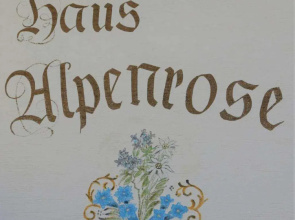 Haus
Alpenrose